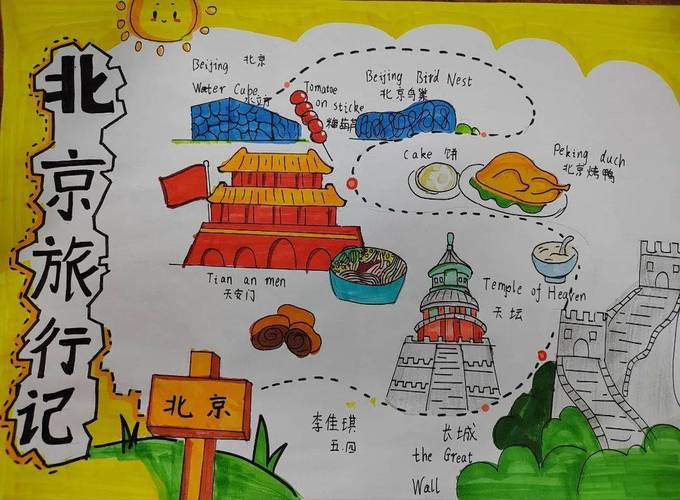 北京旅行记
Beijing 北京
Water Cube
水立方
Tomatoe
on sticke
糖葫芦
Beijing Bird Nest
北京鸟巢
Cake 饼
Peking duch
北京烤鸭
Tian an men
天安门
Temple of Heaven
天坛
北京
李佳琪
五.四
长城
the Great
Wall